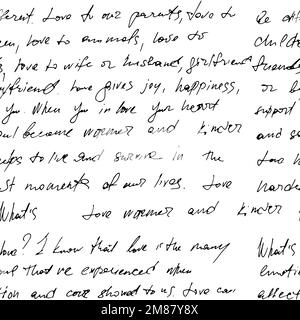 ferent. Love to our parents, love to
love to animals, love to
love to wife or husband, girlfriend
boyfriend. Love gives joy, happiness,
you. When you in love your heart
soul became woemer and kinder
helps to live and survive in the
st moments of our lives. Love
What's love woemer and kinder
love? I know that love is the many
that've experienced when
tion and care showed to us. Love can
Be
child
support
and so
Love
harde
What's
emotio
affect
alamy
Image ID: 2M87Y8X
www.alamy.com